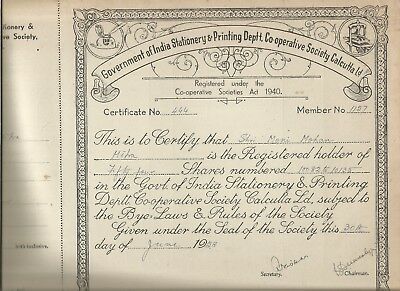 Government of India Stationery & Printing Deptt. Co-operative Society Calcutta Ld
Registered under the
Co-operative Societies Act 1940.
Certificate No. 444 Member No. 1157
This is to Certify that Shri Moni Mohan
Mitra is the Registered holder of
Fifty four Shares numbered
in the Govt. of India Stationery & Printing
Deptt Co-operative Society Calcutta Ld, subject to
the Bye-Laws & Rules of the Society
Given under the Seal of the Society this 30th
day of June 19
Secretary. Chairman.
tionery &
ive Society,
both inclusive.